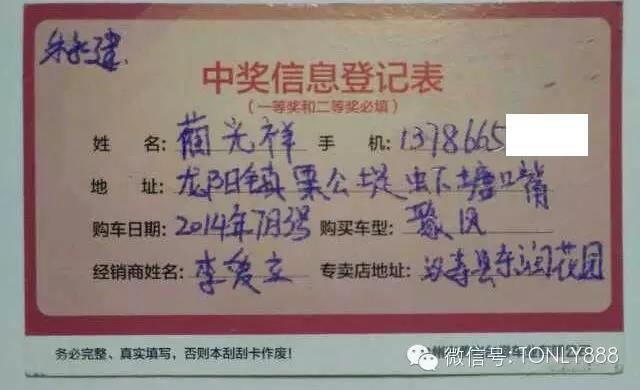 中奖信息登记表
（一等奖和二等奖必填）
姓 名：蔺光祥 手 机：1378665
地 址：龙阳镇粟公堤虾下塘口嘴
购车日期：2014年7月3号 购买车型：聚风
经销商姓名：李爱立 专卖店地址：汉寿县东润花园
务必完整、真实填写，否则本刮刮卡作废！
微信号：TONLY888